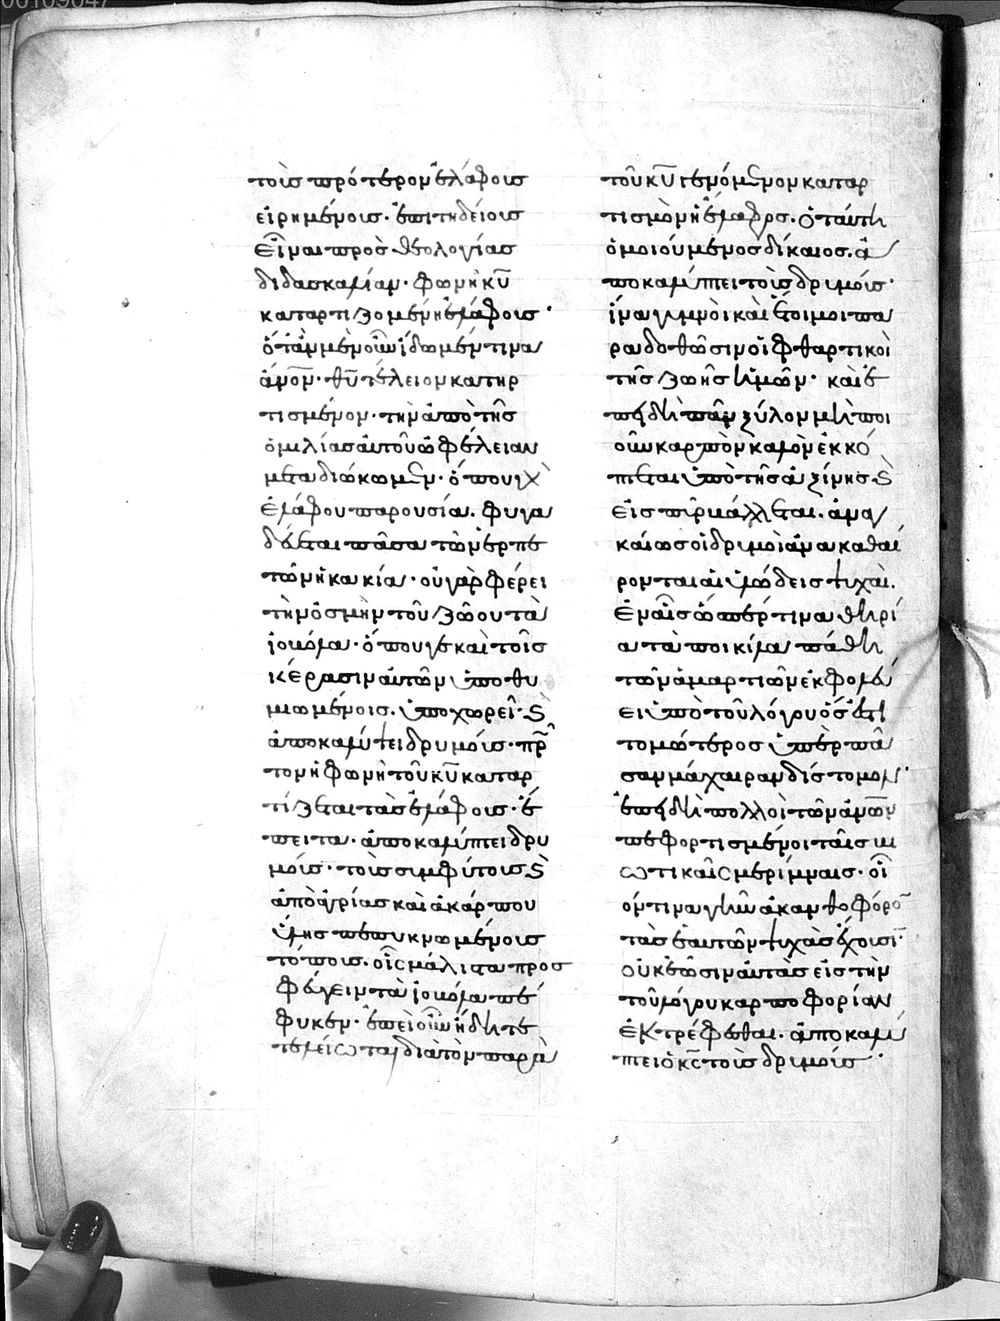 τοῖς πρότερον ἐλάφοις
εἰρημένοις· ἐπιτηδείοις
εἶναι πρὸς θεολογίας
διδασκαλίαν· φωνὴ κυ
καταρτιζομένη ἐλάφοις·
ὅταν μὲν οὖν ἴδωμέν τινα
ἄνον· θυ τέλειον κατηρ
τισμένον· τὴν ἀπὸ τῆς
ὁμιλίας αὐτοῦ ὠφέλειαν
μεταδιώκωμεν· ὅπου γὰρ
ἐλάφου παρουσία. φυγα
δεύεται πᾶσα τῶν ἑρπε
τῶν ἡ κακία· οὐ γὰρ φέρει
τὴν ὀσμὴν τοῦ ζώου τὰ
ἰοβόλα· ὅπου γε καὶ τοῖς
κέρασιν αὐτῶν ὑποθυ
μιωμένοις. ὑποχωρεῖ· καὶ
ἀποκαλύψει δρυμούς· πρῶ
τον ἡ φωνὴ τοῦ κυ καταρ
τίζεται τὰς ἐλάφους· ἔ
πειτα· ἀποκαλύπτει δρυ
μούς· τοὺς συμφύτους καὶ
ἀπὸ ἀγρίας καὶ ἀκάρπου
ὕλης πεπυκνωμένους
τόπους. οἷς μάλιστα προσ
φεύγειν τὰ ἰοβόλα πέ
φυκεν· ἐπεὶ οὖν ἤδη τε
τελείωται διὰ τὸν παρὰ
τοῦ κυ γενόμενον καταρ
τισμὸν ἡ ἔλαφος. ὁ ταύτῃ
ὁμοιούμενος δίκαιος. ἀ
ποκαλύπτει τοὺς δρυμούς·
ἵνα γυμνοὶ καὶ ἕτοιμοι πα
ραδοθῶσιν οἱ φθαρτικοὶ
τῆς ζωῆς ἡμῶν· καὶ ἐ
πειδὴ πᾶν ξύλον μὴ ποι
οῦν καρπὸν καλὸν ἐκκό
πτεται ὑπὸ τῆς ἀξίνης καὶ
εἰς πῦρ βάλλεται. ἀναγ
καίως οἱ δρυμοὶ ἅμα καθαί
ρονται αἱ ὑλώδεις ψυχαὶ.
ἐν αἷς ὥσπερ τινὰ θηρί
α τὰ ποικίλα πάθη
τῶν ἁμαρτιῶν ἐκφωλεύ
ει ὑπὸ τοῦ λόγου ὅς ἐστι
τομώτερος ὑπὲρ πᾶ
σαν μάχαιραν δίστομον·
ἐπειδὴ πολλοὶ τῶν ἀνων
πεφορτισμένοι ταῖς βι
ωτικαῖς μερίμναις. οἷ
όν τινα γῆν ἀκανθοφόρον
τὰς ἑαυτῶν ψυχὰς ἔχουσι·
οὐκ ἐῶσιν αὐτὰς εἰς τὴν
τοῦ λόγου καρποφορίαν
ἐκτρέφεσθαι. ἀποκαλύ
πτει ὁ κς τοὺς δρυμούς·